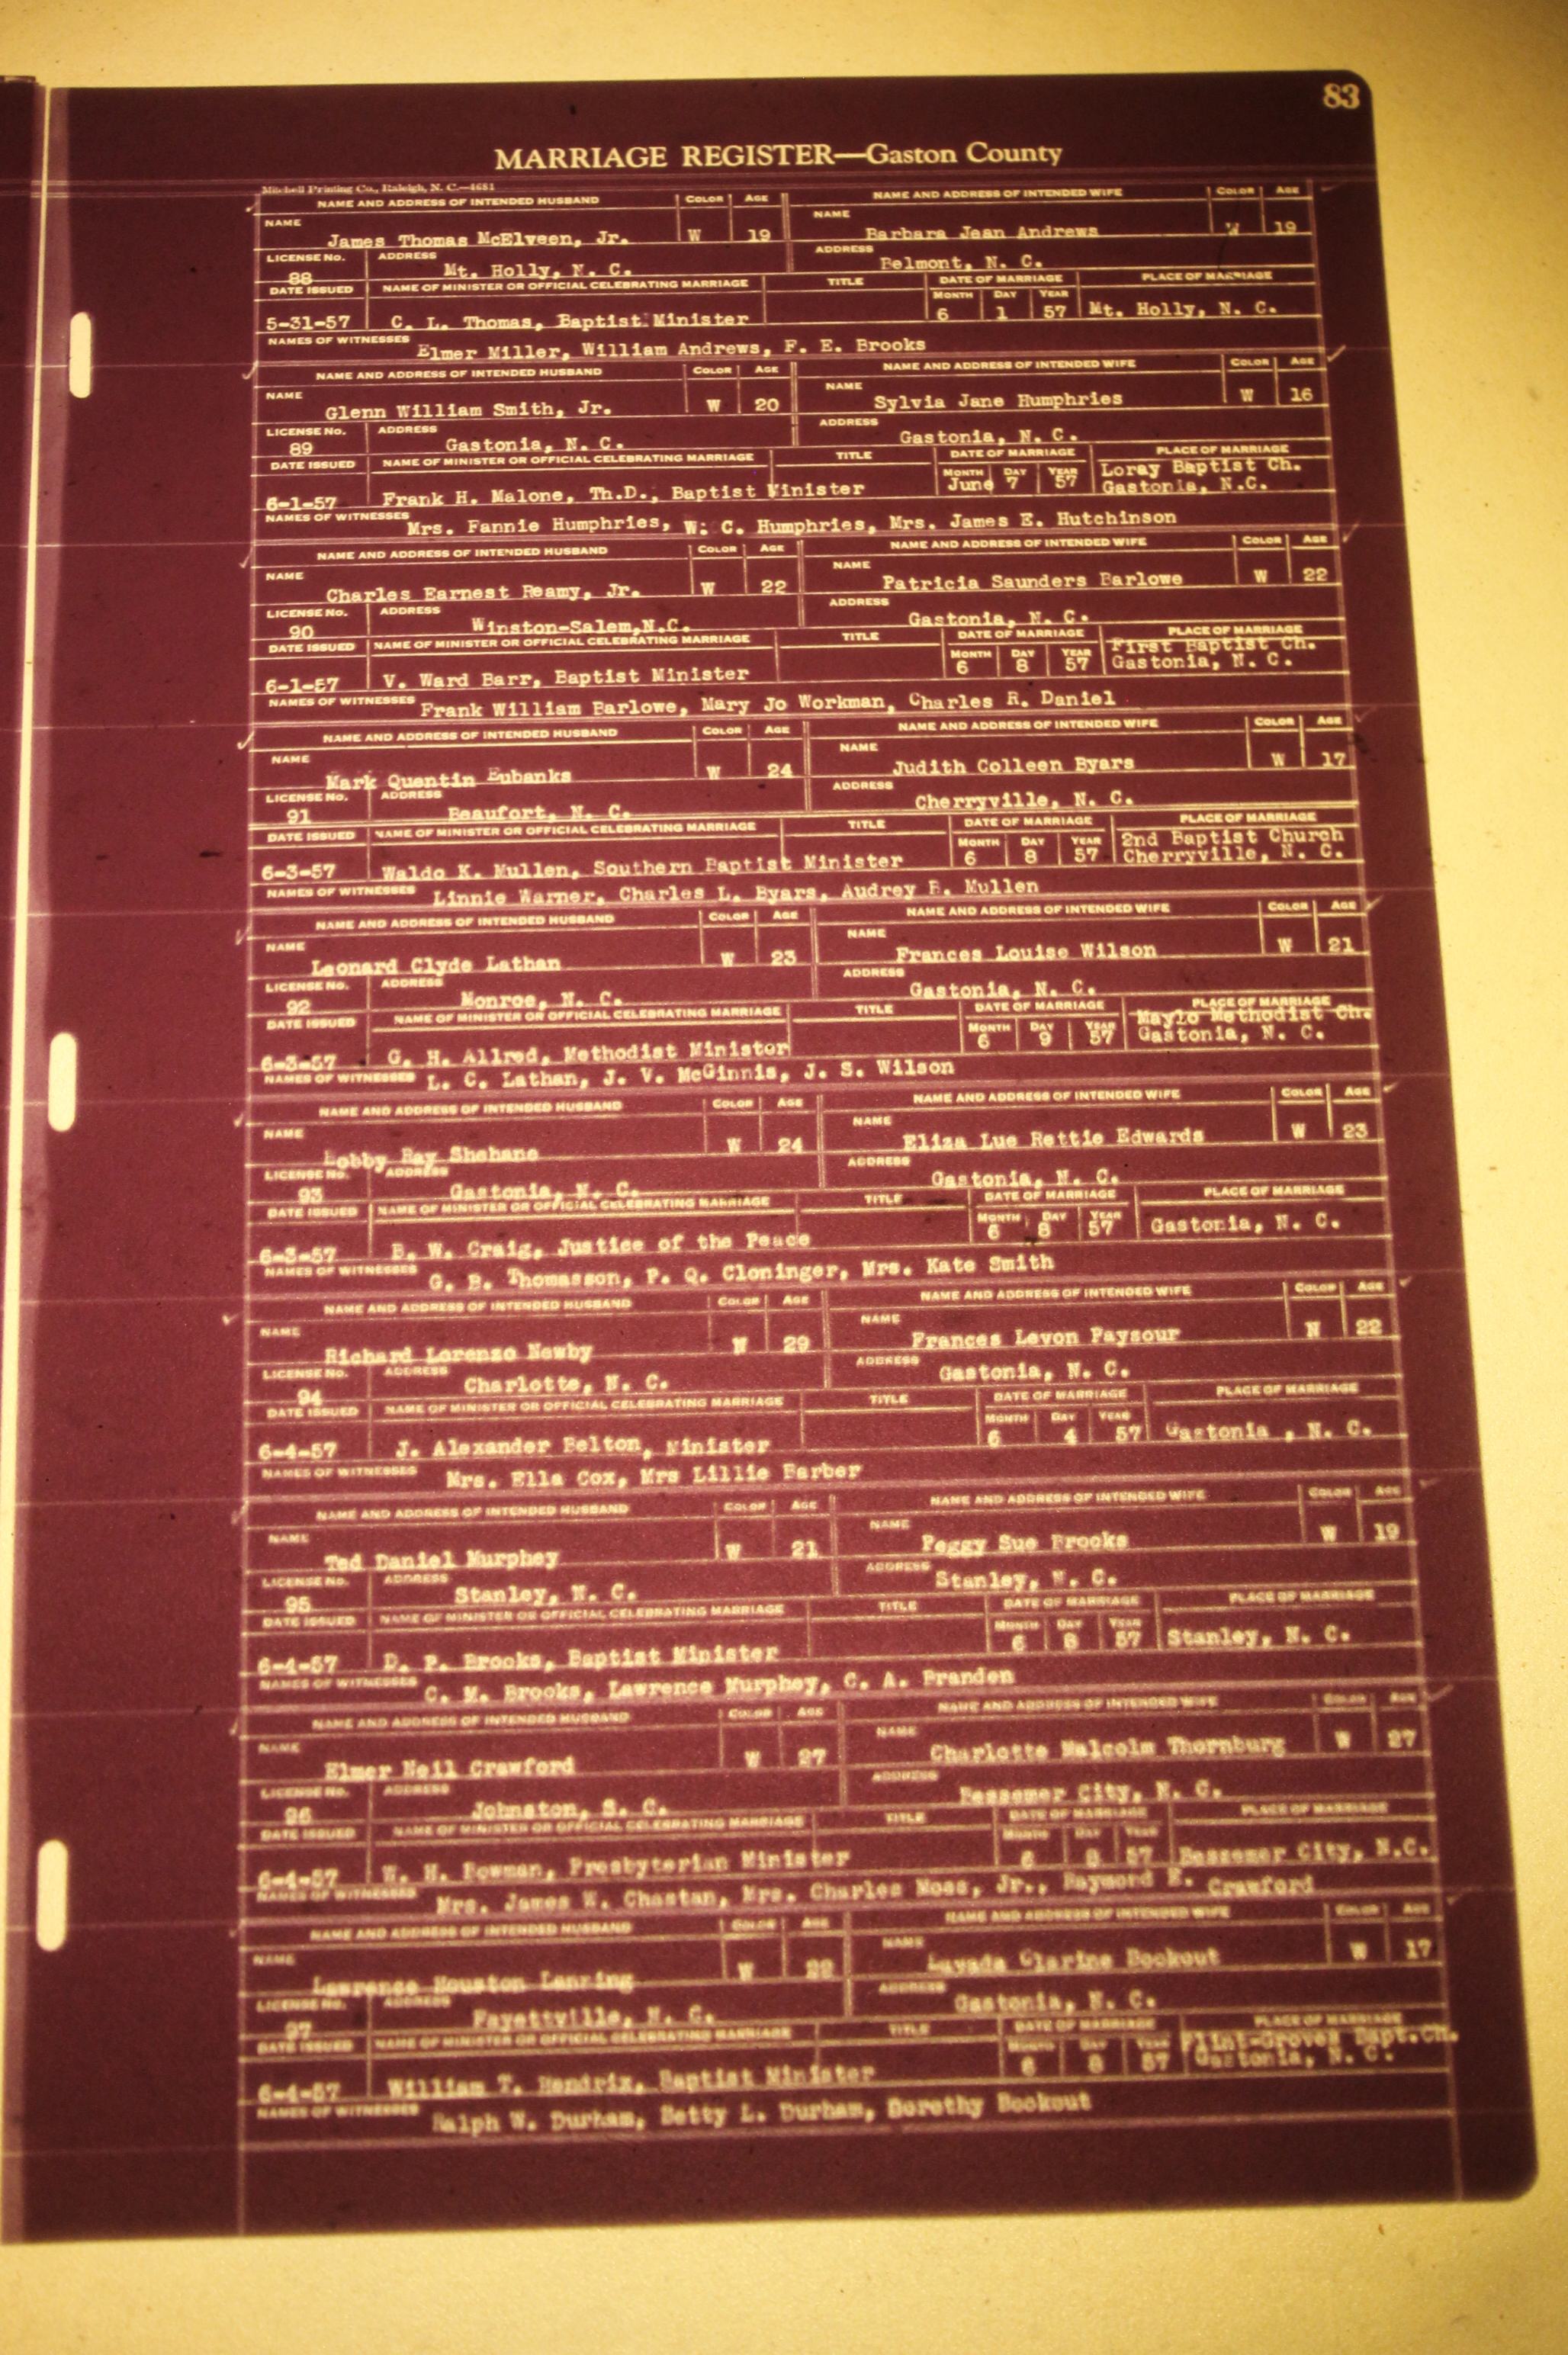 83
MARRIAGE REGISTER—Gaston County
Mitchell Printing Co., Raleigh, N. C.—4681
NAME AND ADDRESS OF INTENDED HUSBAND COLOR AGE NAME AND ADDRESS OF INTENDED WIFE COLOR AGE
NAME James Thomas McElveen, Jr. W 19 NAME Barbara Jean Andrews W 19
LICENSE No. 88 ADDRESS Mt. Holly, N. C. ADDRESS Belmont, N. C.
DATE ISSUED NAME OF MINISTER OR OFFICIAL CELEBRATING MARRIAGE TITLE DATE OF MARRIAGE PLACE OF MARRIAGE
MONTH DAY YEAR
5-31-57 C. L. Thomas, Baptist Minister 6 1 57 Mt. Holly, N. C.
NAMES OF WITNESSES Elmer Miller, William Andrews, F. E. Brooks
NAME AND ADDRESS OF INTENDED HUSBAND COLOR AGE NAME AND ADDRESS OF INTENDED WIFE COLOR AGE
NAME Glenn William Smith, Jr. W 20 NAME Sylvia Jane Humphries W 16
LICENSE No. 89 ADDRESS Gastonia, N. C. ADDRESS Gastonia, N. C.
DATE ISSUED NAME OF MINISTER OR OFFICIAL CELEBRATING MARRIAGE TITLE DATE OF MARRIAGE PLACE OF MARRIAGE
MONTH DAY YEAR Loray Baptist Ch.
6-1-57 Frank H. Malone, Th.D., Baptist Minister June 7 57 Gastonia, N.C.
NAMES OF WITNESSES Mrs. Fannie Humphries, W: C. Humphries, Mrs. James E. Hutchinson
NAME AND ADDRESS OF INTENDED HUSBAND COLOR AGE NAME AND ADDRESS OF INTENDED WIFE COLOR AGE
NAME Charles Earnest Reamy, Jr. W 22 NAME Patricia Saunders Barlowe W 22
LICENSE No. 90 ADDRESS Winston-Salem,N.C. ADDRESS Gastonia, N. C.
DATE ISSUED NAME OF MINISTER OR OFFICIAL CELEBRATING MARRIAGE TITLE DATE OF MARRIAGE PLACE OF MARRIAGE
MONTH DAY YEAR First Baptist Ch.
6-1-57 V. Ward Barr, Baptist Minister 6 8 57 Gastonia, N. C.
NAMES OF WITNESSES Frank William Barlowe, Mary Jo Workman, Charles R. Daniel
NAME AND ADDRESS OF INTENDED HUSBAND COLOR AGE NAME AND ADDRESS OF INTENDED WIFE COLOR AGE
NAME Mark Quentin Eubanks W 24 NAME Judith Colleen Byars W 17
LICENSE No. 91 ADDRESS Beaufort, N. C. ADDRESS Cherryville, N. C.
DATE ISSUED NAME OF MINISTER OR OFFICIAL CELEBRATING MARRIAGE TITLE DATE OF MARRIAGE PLACE OF MARRIAGE
MONTH DAY YEAR 2nd Baptist Church
6-3-57 Waldo K. Mullen, Southern Baptist Minister 6 8 57 Cherryville, N. C.
NAMES OF WITNESSES Linnie Warner, Charles L. Byars, Audrey B. Mullen
NAME AND ADDRESS OF INTENDED HUSBAND COLOR AGE NAME AND ADDRESS OF INTENDED WIFE COLOR AGE
NAME Leonard Clyde Lathan W 23 NAME Frances Louise Wilson W 21
LICENSE No. 92 ADDRESS Monroe, N. C. ADDRESS Gastonia, N. C.
DATE ISSUED NAME OF MINISTER OR OFFICIAL CELEBRATING MARRIAGE TITLE DATE OF MARRIAGE PLACE OF MARRIAGE
MONTH DAY YEAR Maylo Methodist Ch.
6-3-57 G. H. Allred, Methodist Minister 6 9 57 Gastonia, N. C.
NAMES OF WITNESSES L. C. Lathan, J. V. McGinnis, J. S. Wilson
NAME AND ADDRESS OF INTENDED HUSBAND COLOR AGE NAME AND ADDRESS OF INTENDED WIFE COLOR AGE
NAME Bobby Ray Shehane W 24 NAME Eliza Lue Rettie Edwards W 23
LICENSE No. 93 ADDRESS Gastonia, N. C. ADDRESS Gastonia, N. C.
DATE ISSUED NAME OF MINISTER OR OFFICIAL CELEBRATING MARRIAGE TITLE DATE OF MARRIAGE PLACE OF MARRIAGE
MONTH DAY YEAR
6-3-57 B. W. Craig, Justice of the Peace 6 8 57 Gastonia, N. C.
NAMES OF WITNESSES G. B. Thomasson, P. Q. Cloninger, Mrs. Kate Smith
NAME AND ADDRESS OF INTENDED HUSBAND COLOR AGE NAME AND ADDRESS OF INTENDED WIFE COLOR AGE
NAME Richard Lorenzo Newby N 29 NAME Frances Levon Paysour N 22
LICENSE No. 94 ADDRESS Charlotte, N. C. ADDRESS Gastonia, N. C.
DATE ISSUED NAME OF MINISTER OR OFFICIAL CELEBRATING MARRIAGE TITLE DATE OF MARRIAGE PLACE OF MARRIAGE
MONTH DAY YEAR
6-4-57 J. Alexander Belton, Minister 6 4 57 Gastonia , N. C.
NAMES OF WITNESSES Mrs. Ella Cox, Mrs Lillie Barber
NAME AND ADDRESS OF INTENDED HUSBAND COLOR AGE NAME AND ADDRESS OF INTENDED WIFE COLOR AGE
NAME Ted Daniel Murphey W 21 NAME Peggy Sue Brooks W 19
LICENSE No. 95 ADDRESS Stanley, N. C. ADDRESS Stanley, N. C.
DATE ISSUED NAME OF MINISTER OR OFFICIAL CELEBRATING MARRIAGE TITLE DATE OF MARRIAGE PLACE OF MARRIAGE
MONTH DAY YEAR
6-4-57 D. P. Brooks, Baptist Minister 6 8 57 Stanley, N. C.
NAMES OF WITNESSES C. M. Brooks, Lawrence Murphey, C. A. Branden
NAME AND ADDRESS OF INTENDED HUSBAND COLOR AGE NAME AND ADDRESS OF INTENDED WIFE COLOR AGE
NAME Elmer Neil Crawford W 27 NAME Charlotte Malcolm Thornburg W 27
LICENSE No. 96 ADDRESS Johnston, S. C. ADDRESS Bessemer City, N. C.
DATE ISSUED NAME OF MINISTER OR OFFICIAL CELEBRATING MARRIAGE TITLE DATE OF MARRIAGE PLACE OF MARRIAGE
MONTH DAY YEAR
6-4-57 W. H. Bowman, Presbyterian Minister 6 8 57 Bessemer City, N.C.
NAMES OF WITNESSES Mrs. James W. Chastan, Mrs. Charles Moss, Jr., Raymond E. Crawford
NAME AND ADDRESS OF INTENDED HUSBAND COLOR AGE NAME AND ADDRESS OF INTENDED WIFE COLOR AGE
NAME Lawrence Houston Lanning W 22 NAME Clarine Bookout W 17
LICENSE No. 97 ADDRESS Fayettville, N. C. ADDRESS Gastonia, N. C.
DATE ISSUED NAME OF MINISTER OR OFFICIAL CELEBRATING MARRIAGE TITLE DATE OF MARRIAGE PLACE OF MARRIAGE
MONTH DAY YEAR Flint-Groves Bapt.Ch.
6-4-57 William T. Hendrix, Baptist Minister 6 8 57 Gastonia, N. C.
NAMES OF WITNESSES Ralph W. Durham, Betty L. Durham, Dorothy Bookout